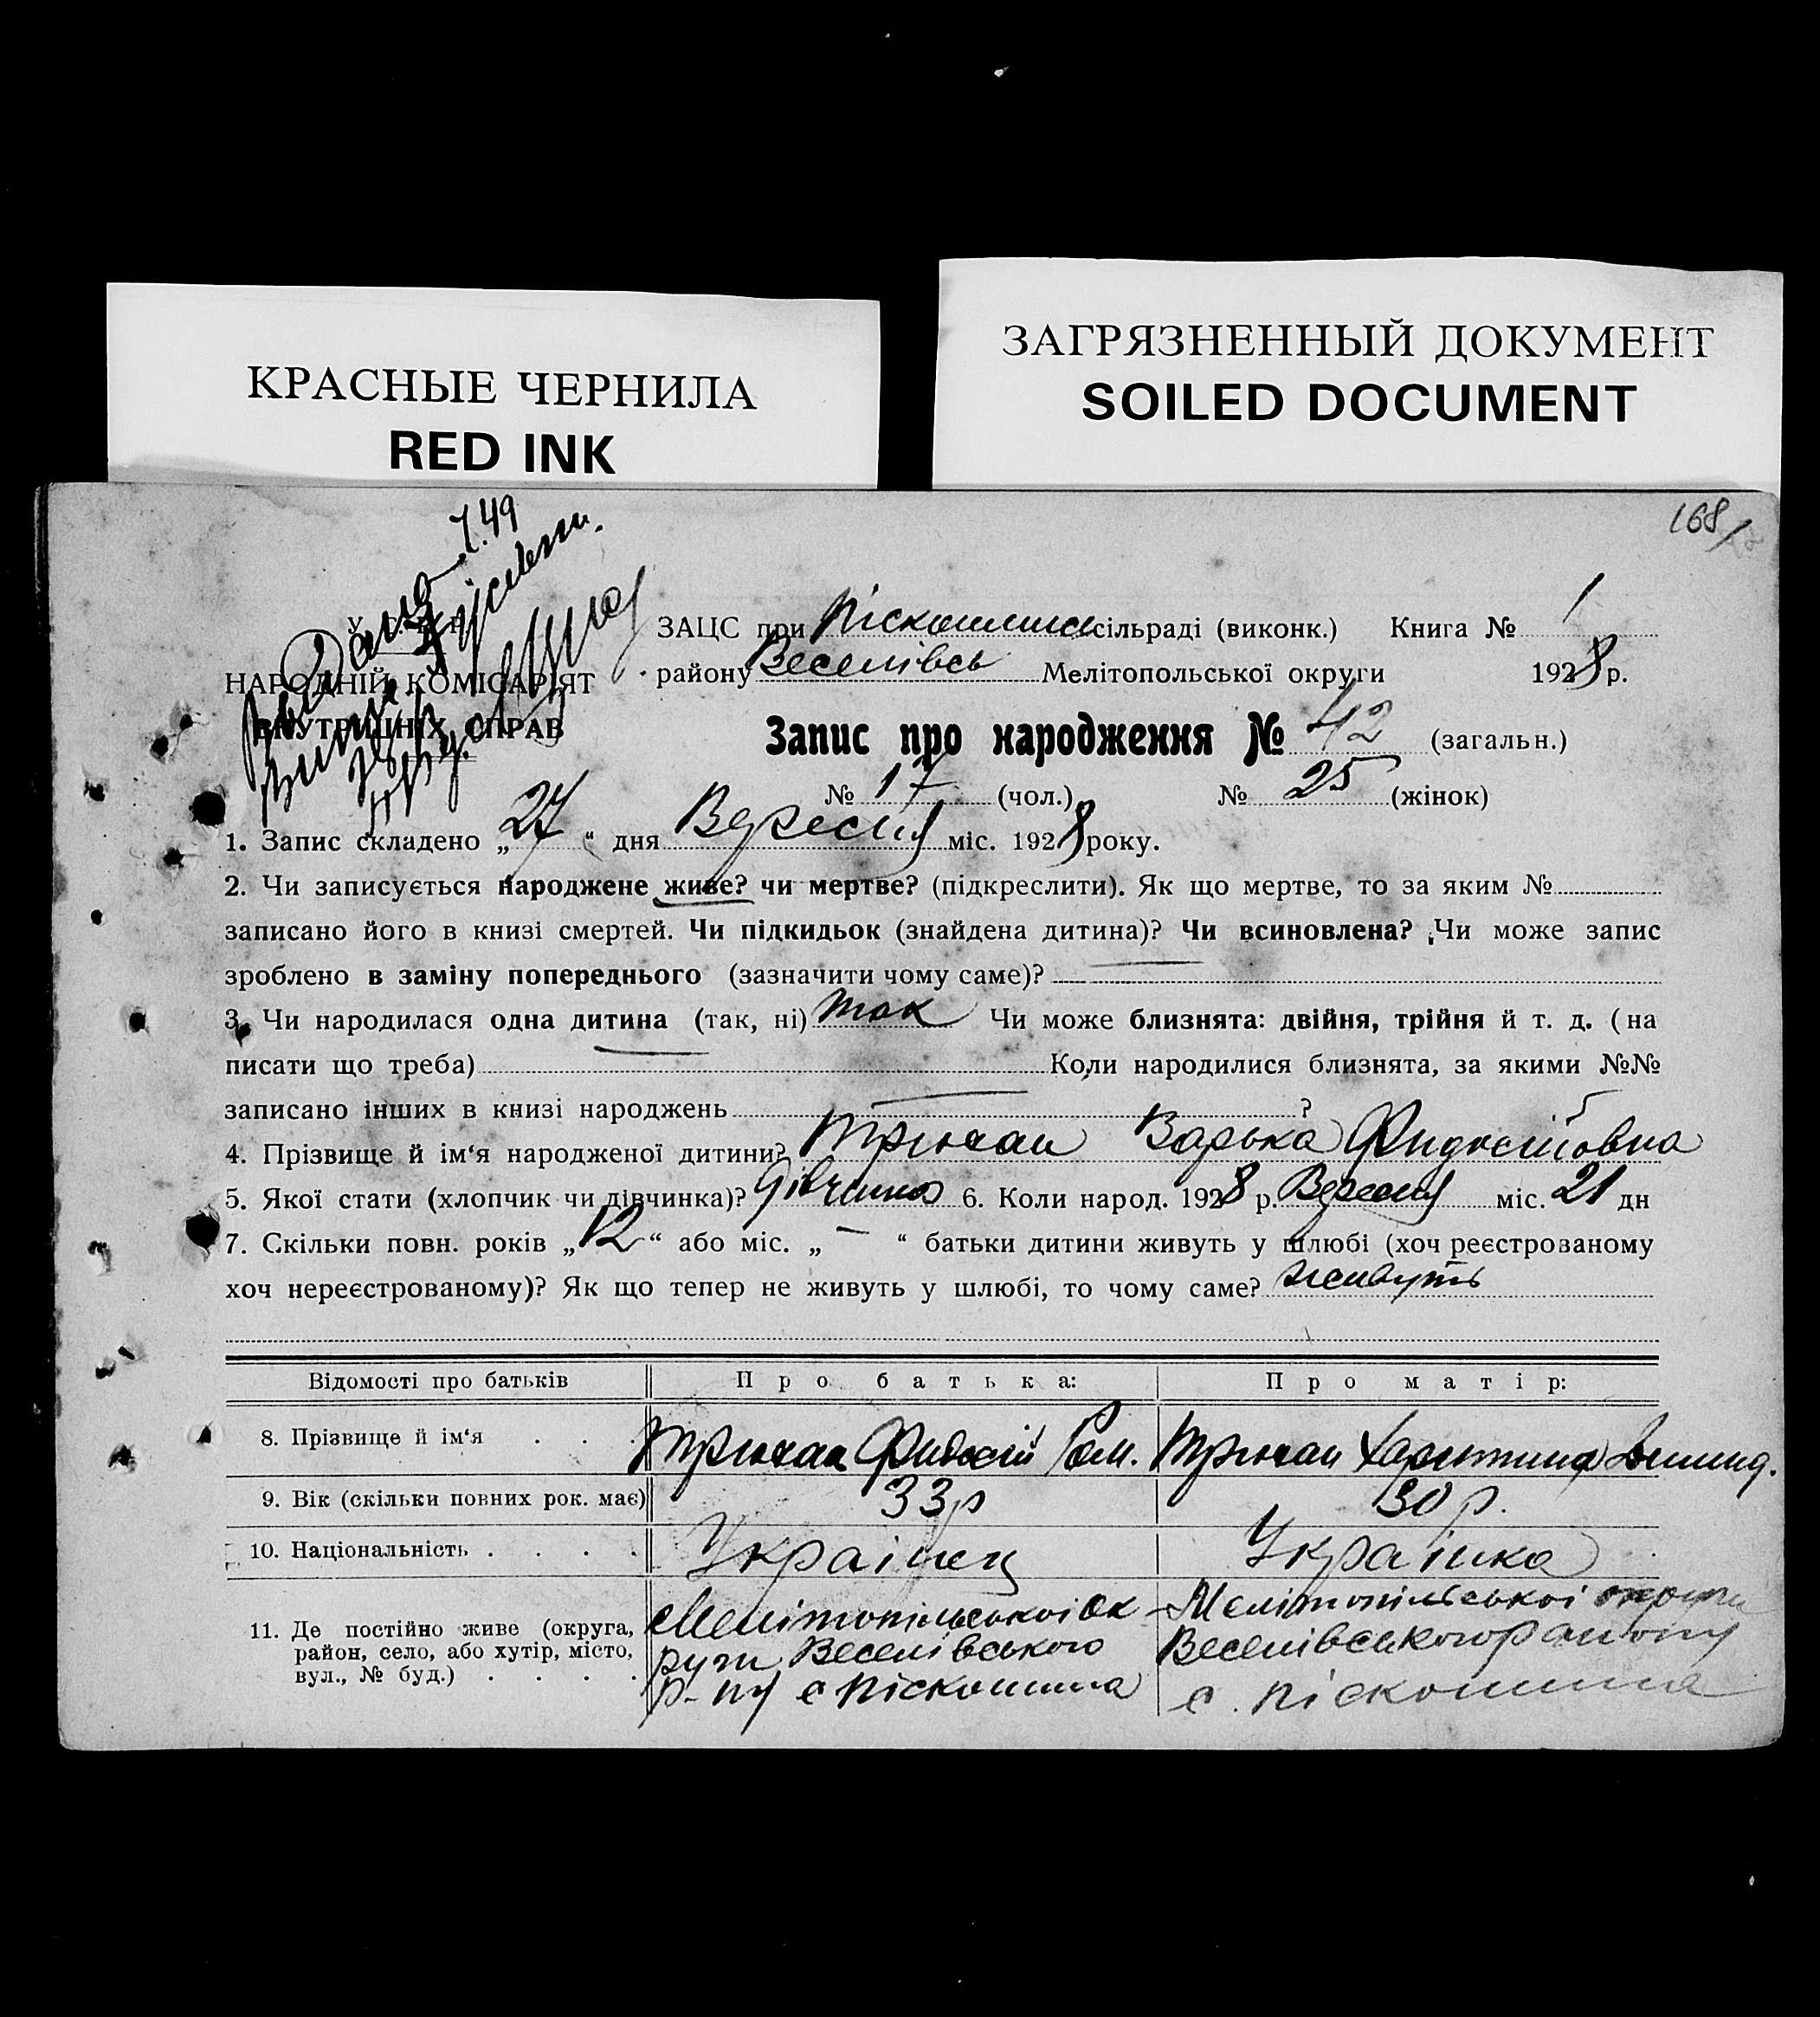 КРАСНЫЕ ЧЕРНИЛА
RED INK
ЗАГРЯЗНЕННЫЙ ДОКУМЕНТ
SOILED DOCUMENT
168/
49
У. С. Р. Р.
НАРОДНІЙ КОМІСАРІЯТ
ВНУТРІШНІХ СПРАВ
ЗАЦС при сільраді (виконк.) Книга № 1
району Веселівсь Мелітопольської округи 1928 р.
Запис про народження № 42 (загальн.)
№ 17 (чол.) № 25 (жінок)
1. Запис складено „27“ дня Вересня міс. 1928 року.
2. Чи записується народжене живе? чи мертве? (підкреслити). Як що мертве, то за яким №
записано його в книзі смертей. Чи підкидьок (знайдена дитина)? Чи всиновлена? Чи може запис
зроблено в заміну попереднього (зазначити чому саме)? —
3. Чи народилася одна дитина (так, ні) так Чи може близнята: двійня, трійня й т. д. (на
писати що треба) — Коли народилися близнята, за якими №№
записано інших в книзі народжень — ?
4. Прізвище й ім‘я народженої дитини? Варька
5. Якої стати (хлопчик чи дівчинка)? Дівчинка 6. Коли народ. 1928 р. Вересня міс. 21 дн
7. Скільки повн. років „12“ або міс. „—“ батьки дитини живуть у шлюбі (хоч реєстрованому
хоч нереєстрованому)? Як що тепер не живуть у шлюбі, то чому саме? живуть
Відомості про батьків Про батька: Про матір:
8. Прізвище й ім‘я
9. Вік (скільки повних рок. має) 33 р 30 р.
10. Національність Украінец Украінка
11. Де постійно живе (округа,
район, село, або хутір, місто,
вул., № буд.)
Мелітопільськоі ок
руги Веселівського
р-ну с Піскошина
Мелітопільськоі округи
Веселівського району
с. Піскошина